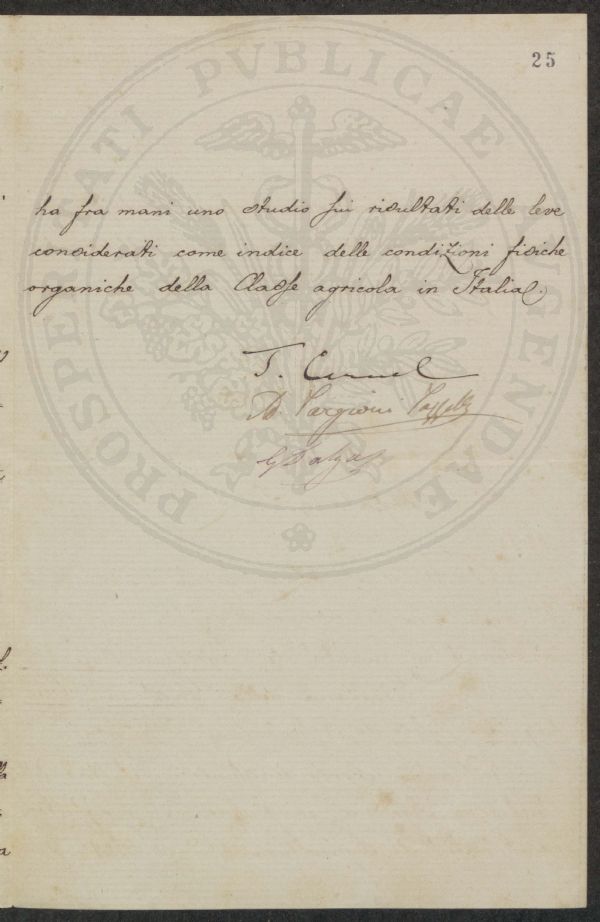 25
ha fra mani uno studio sui risultati delle leve
considerati come indice delle condizioni fisiche
organiche della Classe agricola in Italia.
Targioni Tozzetti
PROSPERITATI PVBLICAE AVGENDAE